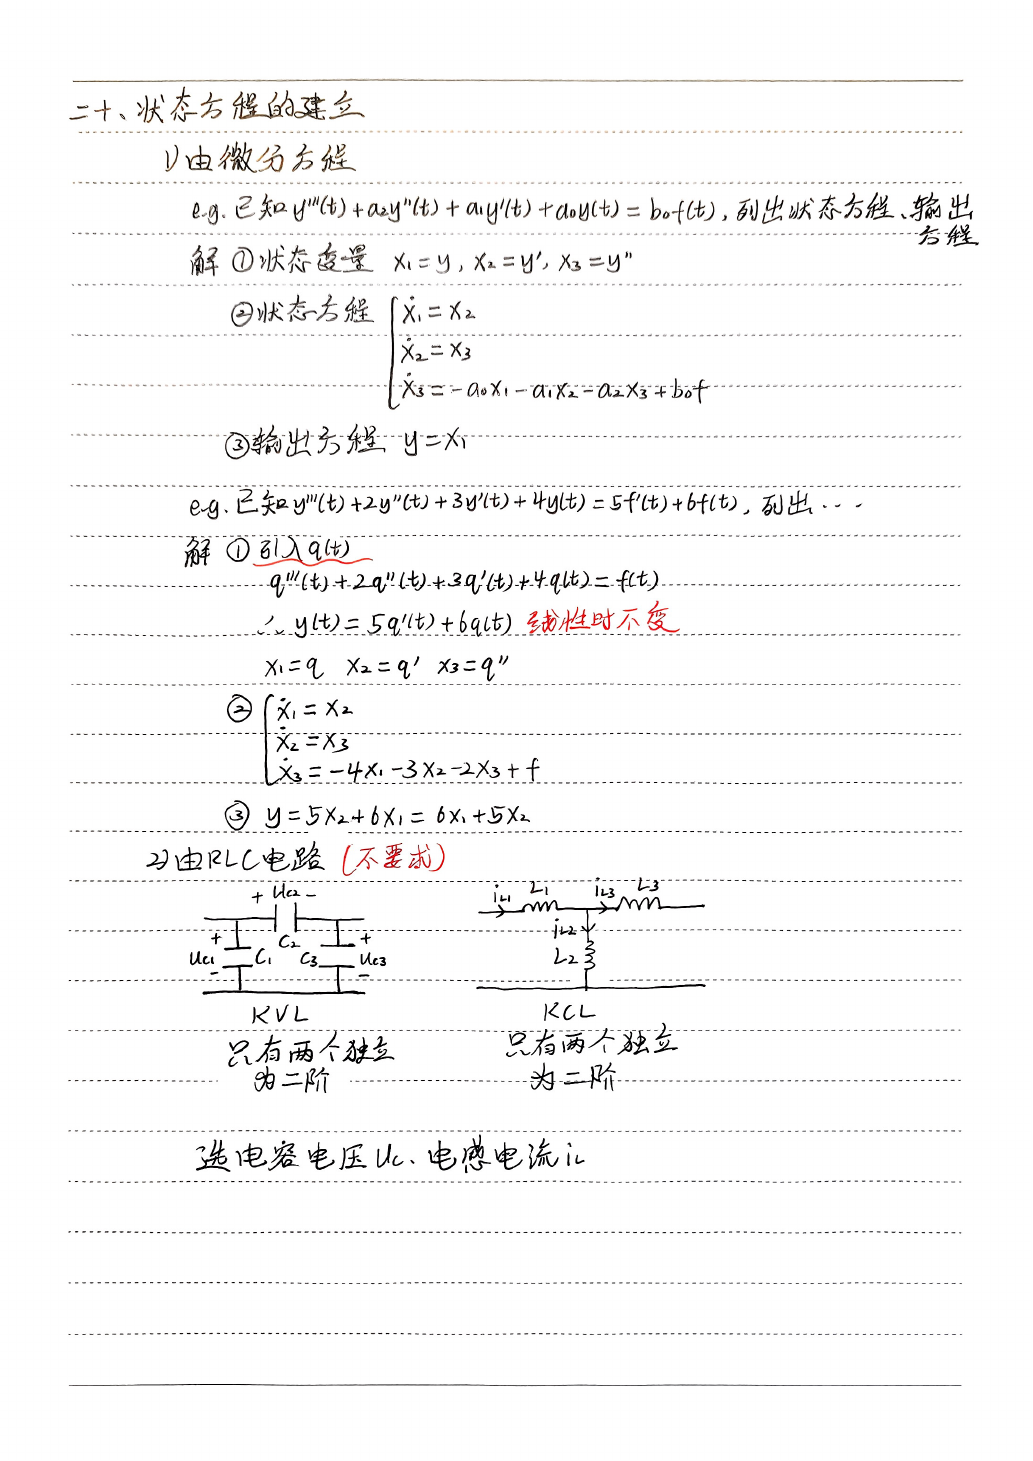 二十、状态方程的建立
1)由微分方程
e.g. 已知y'''(t)+a₂y''(t)+a₁y'(t)+a₀y(t)=b₀f(t), 列出状态方程、输出
方程
解 ①状态变量 x₁=y, x₂=y', x₃=y''
②状态方程 { ẋ₁=x₂
ẋ₂=x₃
ẋ₃=-a₀x₁-a₁x₂-a₂x₃+b₀f
③输出方程 y=x₁
e.g. 已知y'''(t)+2y''(t)+3y'(t)+4y(t)=5f'(t)+6f(t), 列出...
解 ① 引入q(t)
q'''(t)+2q''(t)+3q'(t)+4q(t)=f(t)
∴ y(t)=5q'(t)+6q(t) 线性时不变
x₁=q x₂=q' x₃=q''
② { ẋ₁=x₂
ẋ₂=x₃
ẋ₃=-4x₁-3x₂-2x₃+f
③ y=5x₂+6x₁=6x₁+5x₂
2)由RLC电路(不要求)
+ Uc₂ -
C₂
+ Uc₁ - C₁
C₃ + Uc₃ -
KVL
只有两个独立
为二阶
iL₁ L₁ iL₃ L₃
iL₂
L₂
KCL
只有两个独立
为二阶
选电容电压Uc、电感电流iL